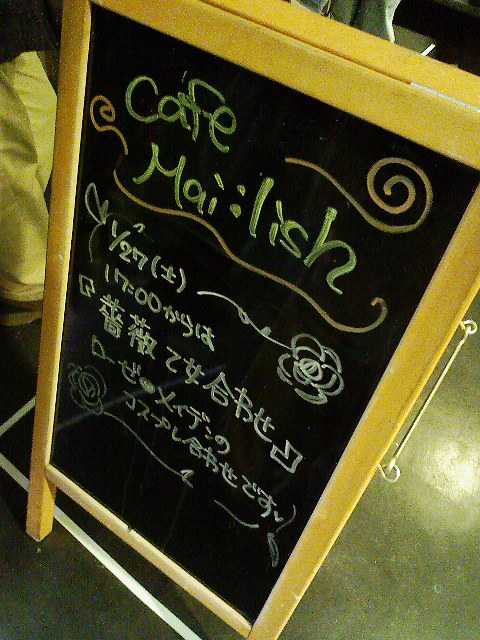 Cafe
Mai:lish
1/27(土)
17:00からは
『薔薇乙女合わせ』
ローゼンメイデンの
コスプレ合わせです♪